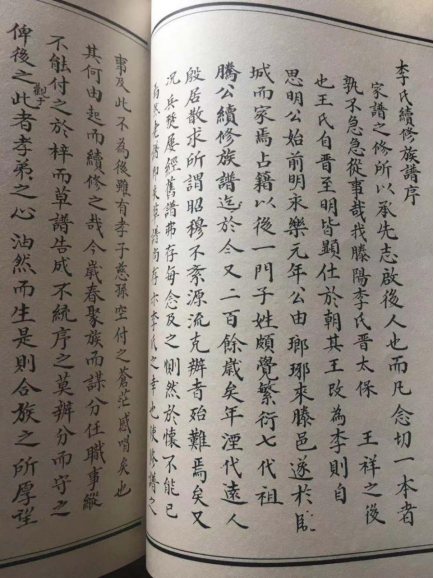 李氏續修族譜序
家譜之修所以承先志啟後人也而凡念切一本者
孰不急急從事哉我滕陽李氏晉太保 王祥之後
也王氏自晉至明皆顯仕於朝其王改為李則自
思明公始前明永樂元年公由瑯琊來滕邑遂於
城而家焉占籍以後一門子姓頗覺繁衍七代祖
騰公續修族譜迄於今又二百餘歲矣年湮代遠人
殷居散求所謂昭穆不紊源流克辦者殆難焉矣又
況兵燹屢經舊譜弗存每念及之惻然於懷不能已
譜尚存亦李氏之幸也修譜之
事及此不為後雖有孝子慈孫空付之蒼茫感喟矣也
其何由起而續修之哉今歲春聚族而謀分任職事縱
不能付之於梓而草譜告成不統序之莫辦分而守之
俾後之觀于此者孝弟之心油然而生是則合族之所厚望